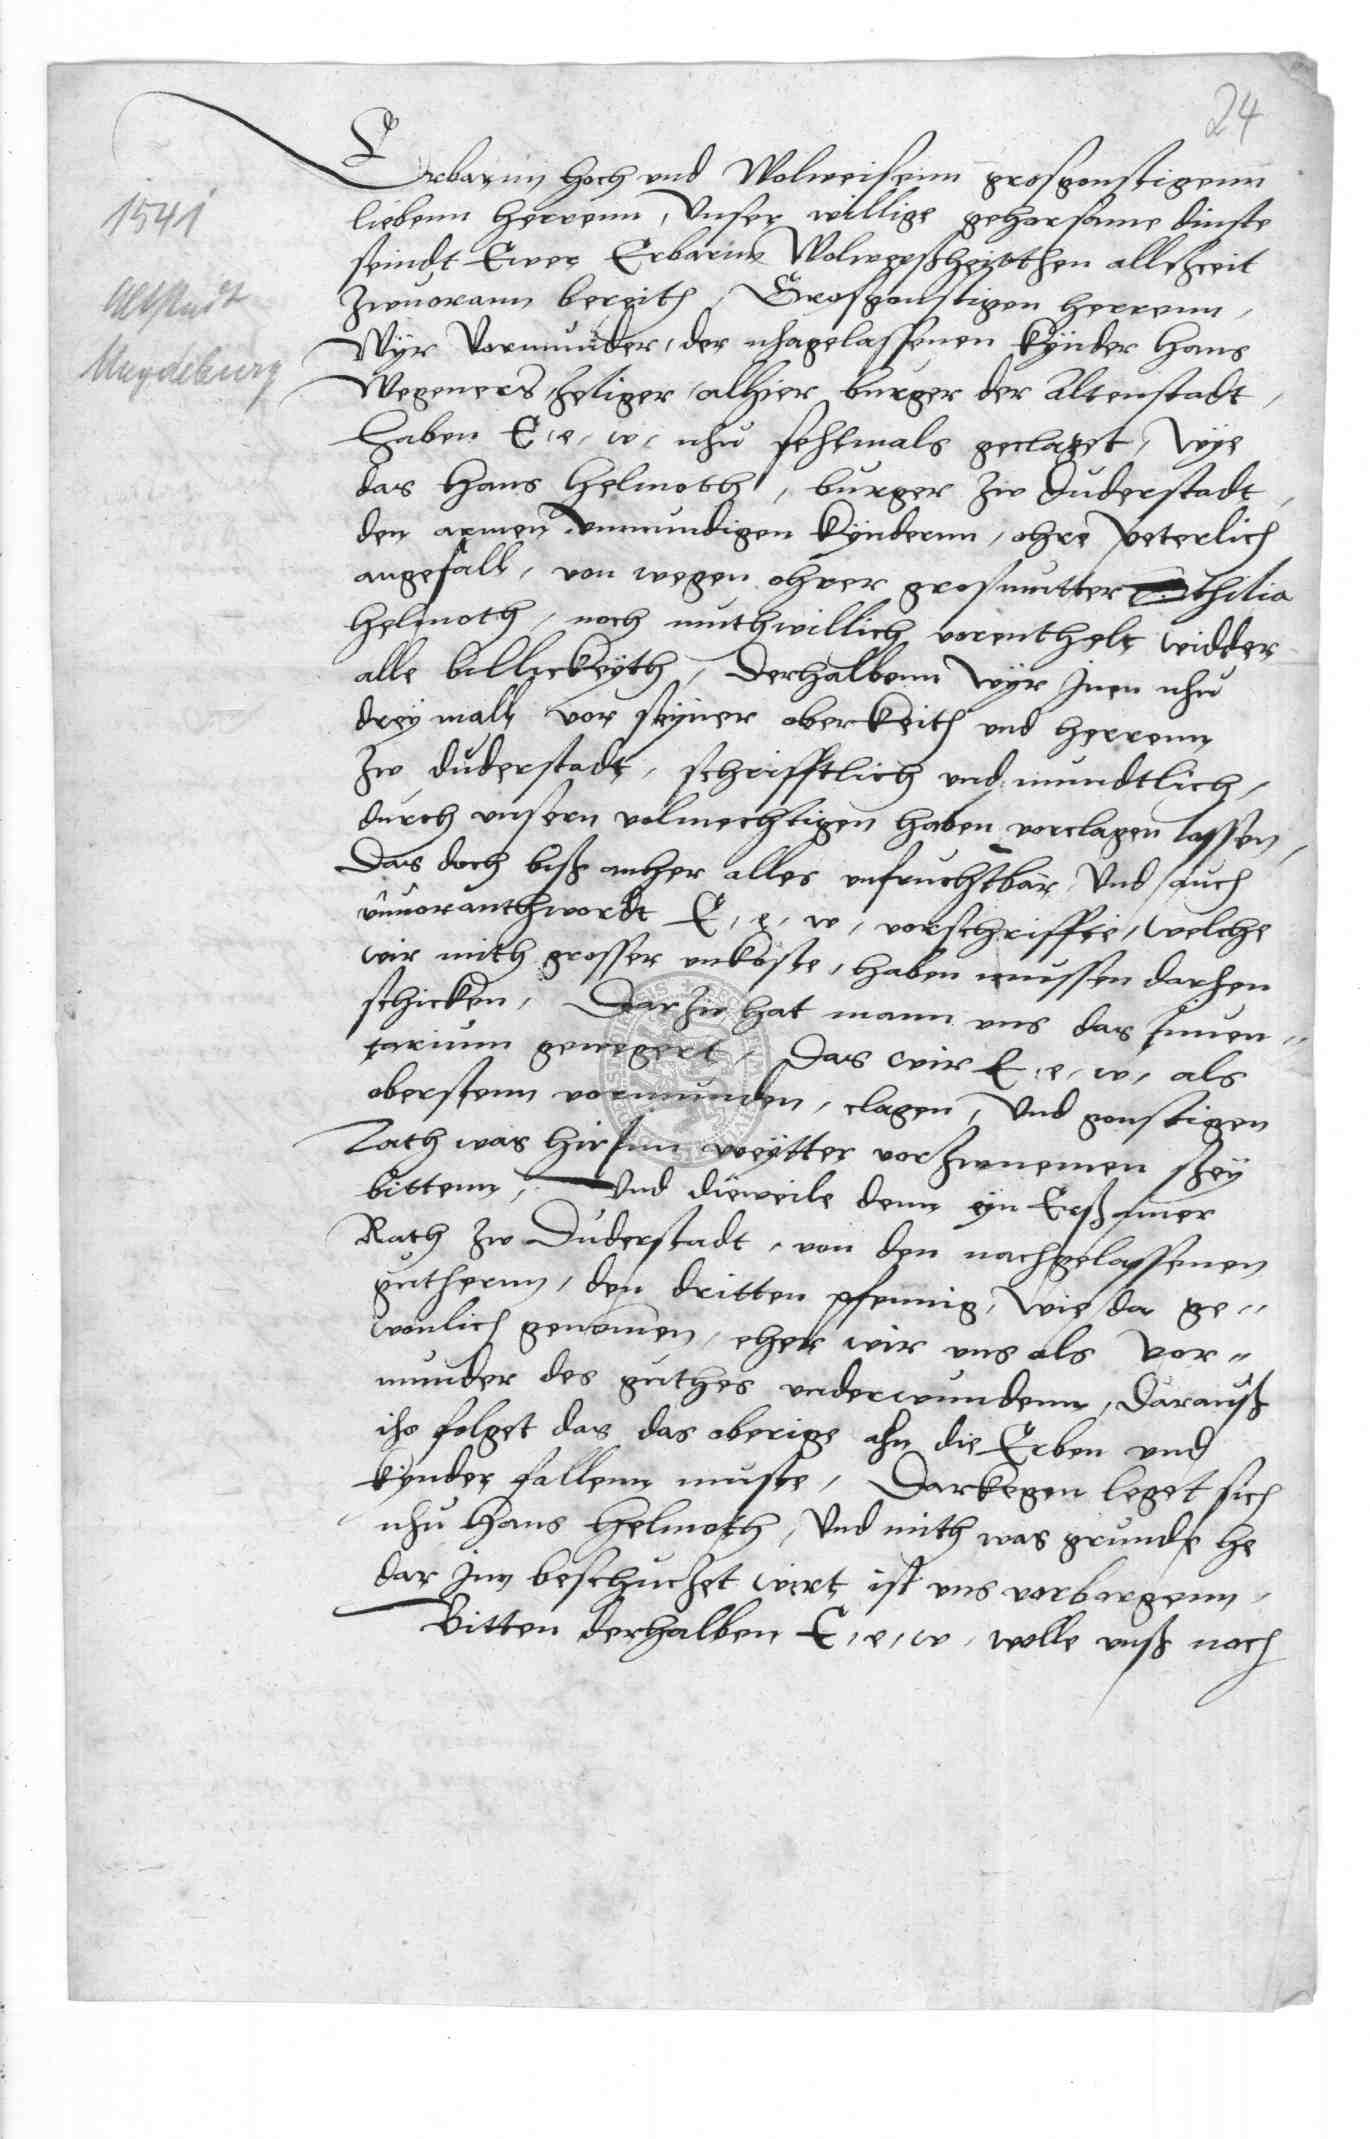 24
Erbarnn hoch und Wolweisenn grosgonstigenn
1541
liebenn herrenn, Unser willige gehorsame dinste
seindt Ewer Erbarnn Wolweyßheitthen allßzeit
Altstadt
zwuorann bereith, Grosgonstigen herrenn,
Magdeburg
Wyr Vormunder, der nhagelassenen kynder Hans
Wegeners seliger alhier burger der Altenstadt,
haben E, e, w, nhu sechtmals geclaget, Wye
das Hans Helmoth, burger zw Duderstadt,
den armen unmundigen kyndernn, ohre veterlich
angefall, von wegen ohrer grosmutter Othilia
Helmoth, noch muthwillich vorenthelt widder
alle billickeyth, Derhalbenn Wyr Inen nhu
drey mall vor seyner oberkeith und herrenn
zw duderstadt, schrifftlich und mundtlich,
durch unsern volmechtigen haben vorclagen lassen,
Das doch biß anher alles unfruchtbar Und auch
unvoranthwordt E, e, w, vorschriffte, welche
wir mith grosser unkoste, haben mussen darhen
schicken, Darzw hat mann uns das Inuen"
tarium gewegert, Das wir E, e, w, als
oberstenn vormunden, clagen, Und gonstigen
Rath was hirInn weytter vorzwnemen sey
bittenn, Und dieweile denn eyn Erßamer
Rath zw Duderstadt, von den nachgelassenen
guthernn, den dritten pfennig, Wie da ge"
wonlich genomen, eher wir uns als vor"
munder des guthes underwundenn, Darauß
iho folget das das oberige ahn die Erben und
kynder fallenn muste, Darkegen leget sich
nhu Hans Helmoth, Und mith was grunde he
dar Inn beschuchet wirt ist uns vorborgenn,
Bitten derhalben E, e, w, wolle unß noch